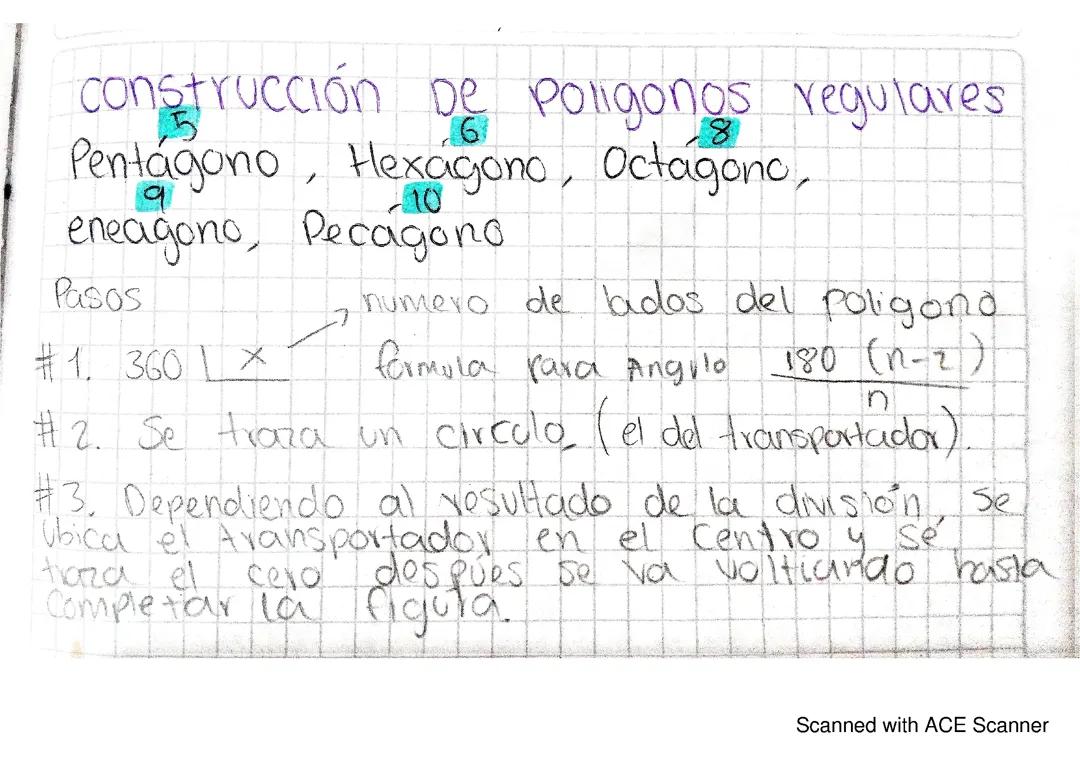 construcción De poligonos regulares
5 6 8
Pentágono, Hexágono, Octágono,
9 10
eneágono, Decágono
Pasos
numero de lados del poligono
#1. 360 x formula para Angulo 180 (n-2)
n
#2. Se traza un circulo (el del transportador).
#3. Dependiendo al resultado de la división, se
Ubica el transportador en el centro y se
traza el cero despúes se va voltiando hasta
completar la figura.
Scanned with ACE Scanner